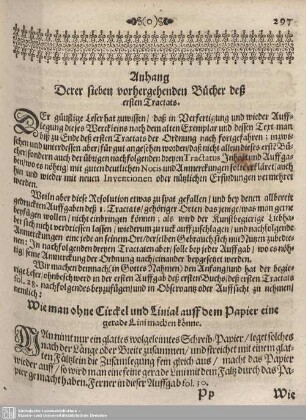 (o) 297
Anhang
Derer sieben vorhergehenden Bücher deß
ersten Tractats.
DEr günstige Leser hat zuwissen / daß in Verfertigung und wieder Auff-
legung dieses Werckleins nach dem alten Exemplar und dessen Text man
biß zu Ende deß ersten Tractats der Ordnung nach fortgefahren; inzwi-
schen und unterdessen aber / für gut angesehen worden / daß nicht allein dieses erste Bü-
cher / sondern auch der übrigen nachfolgenden dreyen Tractaten Inhalt und Auffga-
ben / wo es nöhtig / mit guten deutlichen Notis und Anmerckungen solte erkläret / auch
hin und wieder mit neuen Inventionen oder nützlichen Erfindungen vermehret
werden.
Weiln aber diese Resolution etwas zu spat gefallen / und bey denen allbereit
gedruckten Auffgaben deß 1. Tractats / gehöriger Orten das jenige was man gerne
beyfügen wollen / nicht einbringen können / als wird der Kunstbegierige Liebha-
ber sich nicht verdriessen lassen / wiederum zuruck auffzuschlagen / und nachfolgende
Anmerckungen eine jede an seinem Ort / derselben Gebrauch sich mit Nutzen zubedie-
nen; In nachfolgenden dreyen Tractaten aber / soll bey jeder Auffgab / wo es nöh-
tig / seine Anmerckung der Ordnung nach ineinander beygesetzet werden.
Wir machen demnach (in Gottes Nahmen) den Anfang und hat der begie-
rige Leser / anbelangend in der ersten Auffgab deß ersten Buchs / deß ersten Tractats
fol. 28. nachfolgendes beyzufügen / und in Observanz oder Auffsicht zu nehmen
nemlich:
Wie man ohne Circkel und Linial auff dem Papier eine
gerade Lini machen könne.
MAn nimt nur ein glattes wolgeleimtes Schreib-Papier / leget solches
nach der Länge oder Breite zusammen / und streichet mit einem glat-
ten Fältzbein die Zusamlegung fein gleich aus / macht das Papier
wieder auff / so wird man eine feine gerade Lini mit dem Faltz durch das Pa-
pier gemacht haben. Ferner in dieser Auffgab fol. 30.
Pp Wie